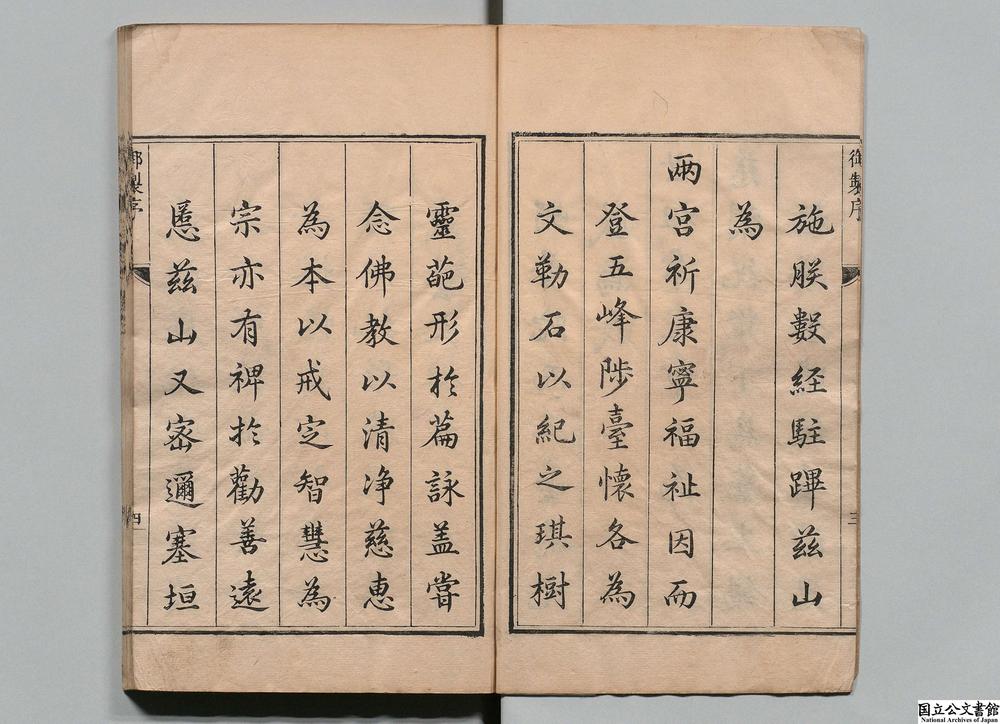 御製序
三
施朕數經駐蹕茲山
為
兩宮祈康寧福祉因而
登五峰陟臺懷各為
文勒石以紀之琪樹
靈葩形扵篇詠盖嘗
念佛教以清净慈惠
為本以戒定智慧為
宗亦有裨扵勸善遠
慝茲山又密邇塞垣
御製序
四
国立公文書館
National Archives of Japan